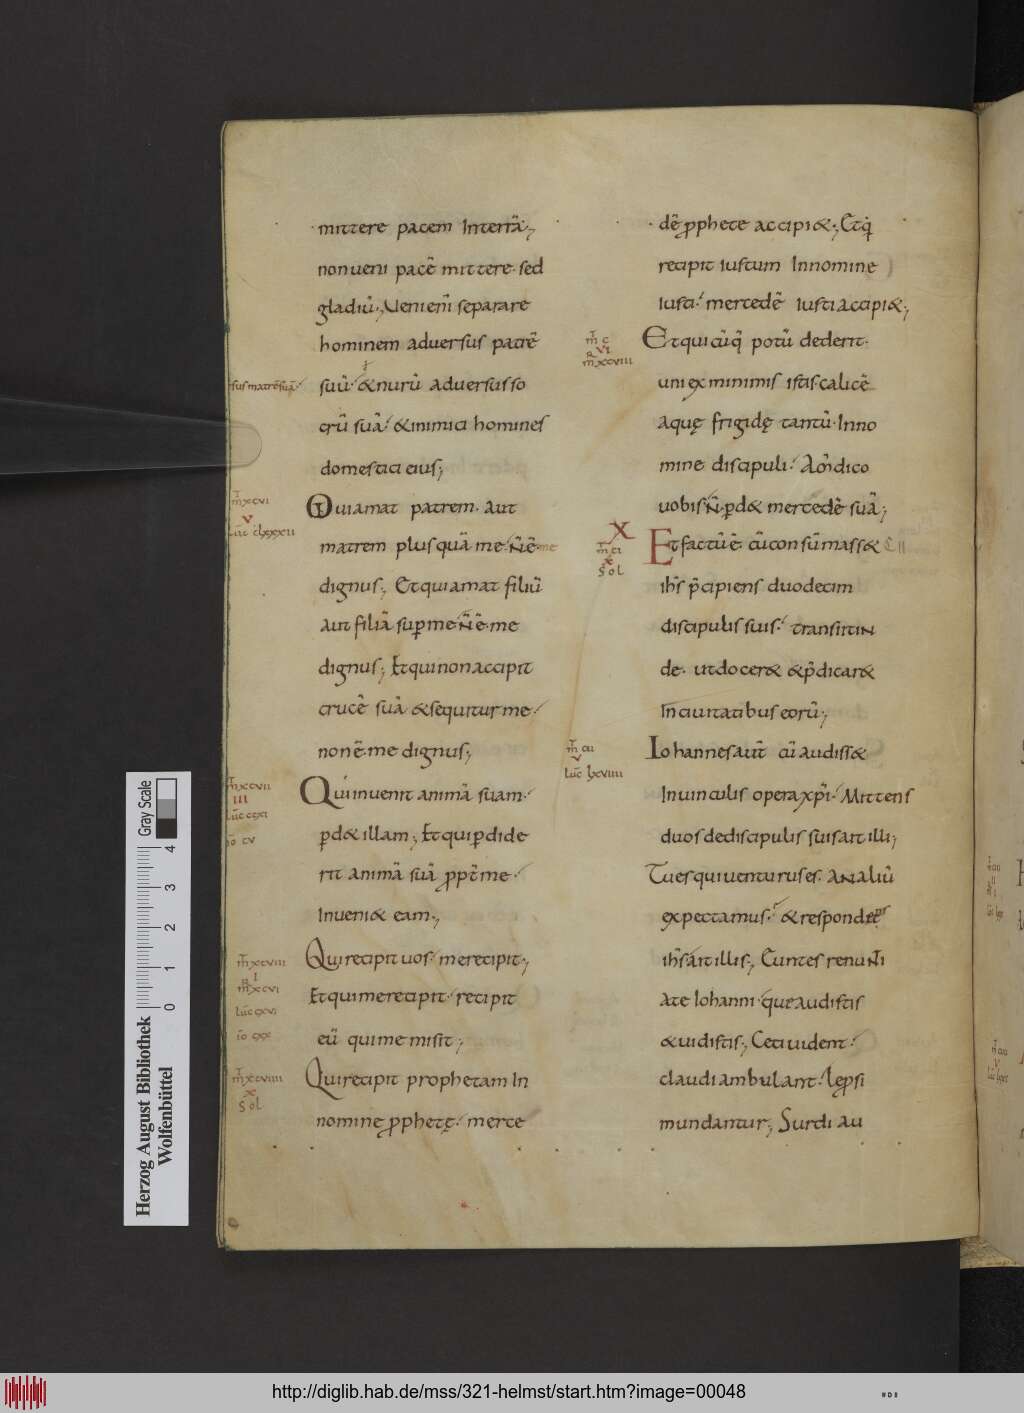 mittere pacem Interrā;
nonueni pacē mittere. sed
gladiū; Ueniem̄ separare
hominem aduersus patrē
suū. &nurū aduersusso
susmatrēsuā
crū suā. &inimici homines
domestici eius;
m̄xcvi
v
luc̄ clxxxii
Qui amat patrem. aut
matrem plusquā me. n̄ē me
dignus; Etquiamat filiū
aut filiā sup me n̄ ē. me
dignus; Etquinonaccipit
crucē suā &sequiturme.
nonē. me dignus;
m̄xcvii
iii
luc̄ccxi
io cv
Qui inuenit animā suam.
pd& illam; Etquipdide
rit animā suā propt̄ me.
Inueni& eam;
m̄xcviii
i
m̄xcvi
luc̄cxvi
io cxx
Quirecipit uos. merecipit;
Etquimerecipit. recipit
eū quimemisit;
m̄xcviiii
x
sol
Quirecipit prophetam In
nomine pphetę. merce
dē pphete accipi&; Etq̇
recipit iustum Innomine
iusti. mercedē iustiaccipi&;
m̄ c
vi
m̄xcviii
Etquicūq̄ potū dederit.
uniexminimis istis. calicē
Aquę frigidę tantū. Inno
mine discipuli. Am̄dico
uobis. n̄. pd& mercedē suā;
X
m̄ci
x
sol
Etfactūē. cūconsūmass& CII
ih̄s p̄cipiens duodecim
discipulis suis. transiitIN
de. utdocer& &p̄dicar&
Inciuitatibus eorū;
m̄ cii
v
luc̄ lxviiii
Iohannesaut̄ cū audiss&
Inuinculis operaxp̄i. Mittens
duosdediscipulis suisait illi;
Tuesquiuenturuses. ANaliū
expectamus. &respond&ns
ih̄sait illis; Euntes renuNti
ate Iohanni. queaudistis
&uidistis; Ceciuident.
claudiambulant. lepsi
mundantur; Surdi au
Herzog August Bibliothek
Wolfenbüttel
0 1 2 3 4
Gray Scale
http://diglib.hab.de/mss/321-helmst/start.htm?image=00048